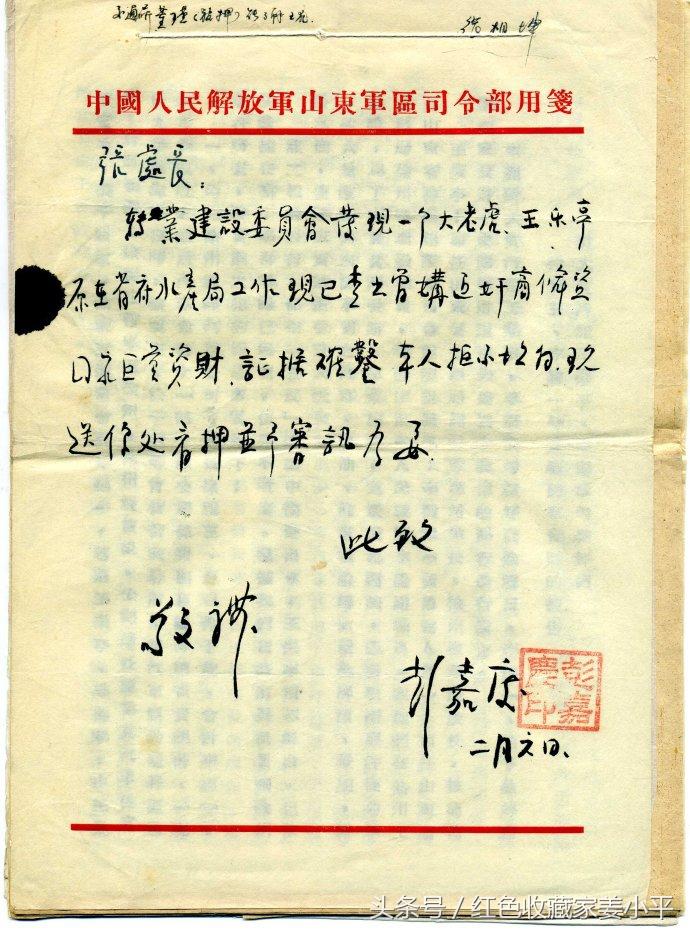 徐相坤
中國人民解放軍山東軍區司令部用箋
張處長：
轉業建設委員會發現一个大老虎、王乐亭
原在省府水產局工作现已查出曾媾通奸商偷盜
国家巨量資財、証据確鑿本人拒不坦白、现
送你处看押並予審訊为妥
此致
敬礼
彭嘉庆
彭嘉慶印
二月六日、
头条号／红色收藏家姜小平